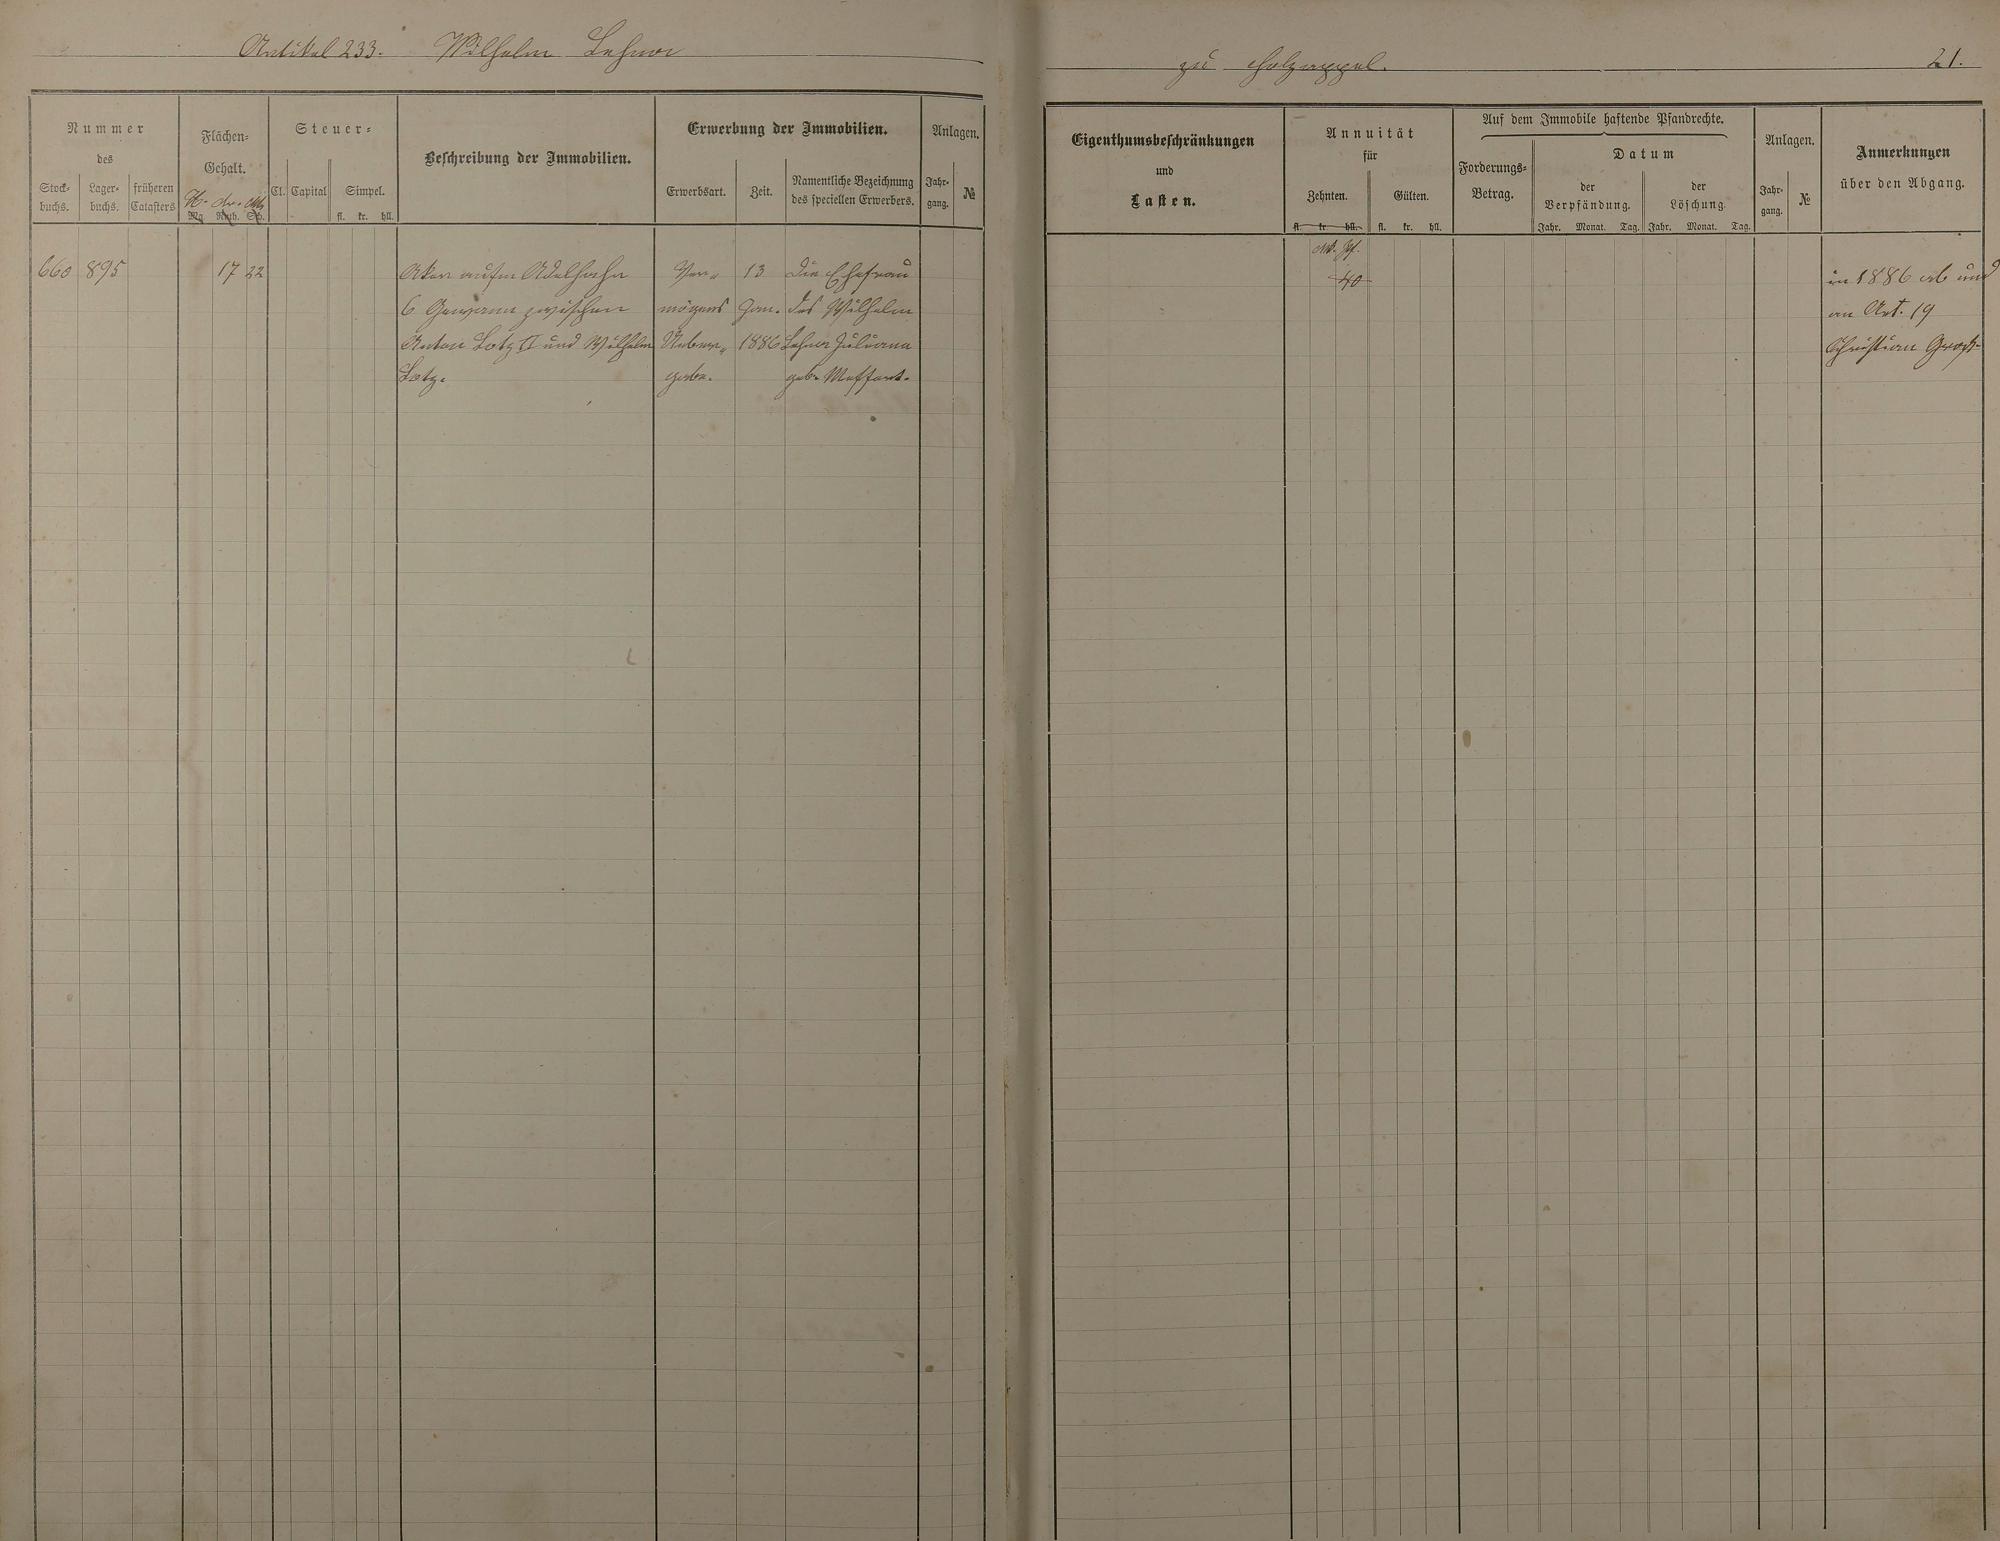 Artikel 233. Wilhelm Lehner
zu Holzappel.
21.
Nummer
des
Stock-
buchs.
Lager-
buchs.
früheren
Catasters
Flächen-
Gehalt.
H. Ar. M.
Mg. Rub. Sch.
Steuer-
Cl. Capital Simpel.
fl. kr. hll.
Beschreibung der Immobilien.
Erwerbung der Immobilien.
Erwerbsart. Zeit.
Namentliche Bezeichnung
des speciellen Erwerbers.
Anlagen.
Jahr-
gang.
№
Eigenthumsbeschränkungen
und
Lasten.
Annuität
für
Zehnten. Gülten.
fl. kr. hll. fl. kr. hll.
Auf dem Immobile haftende Pfandrechte.
Forderungs-
Betrag.
Datum
der
Verpfändung.
der
Löschung.
Jahr. Monat. Tag. Jahr. Monat. Tag.
Anlagen.
Jahr-
gang.
№
Anmerkungen
über den Abgang.
660 895 17 22 Aker aufm Adelhahn Ver- 13 die Ehefrau
6 Gewann zwischen mögens Jan. des Wilhelm
Anton Lotz II und Wilhelm Ueber- 1886 Lehner Juliana
Lotz. gabe. geb. Meffert.
Mk. Pf.
40
in 1886 ab und
an Art. 19
Christian